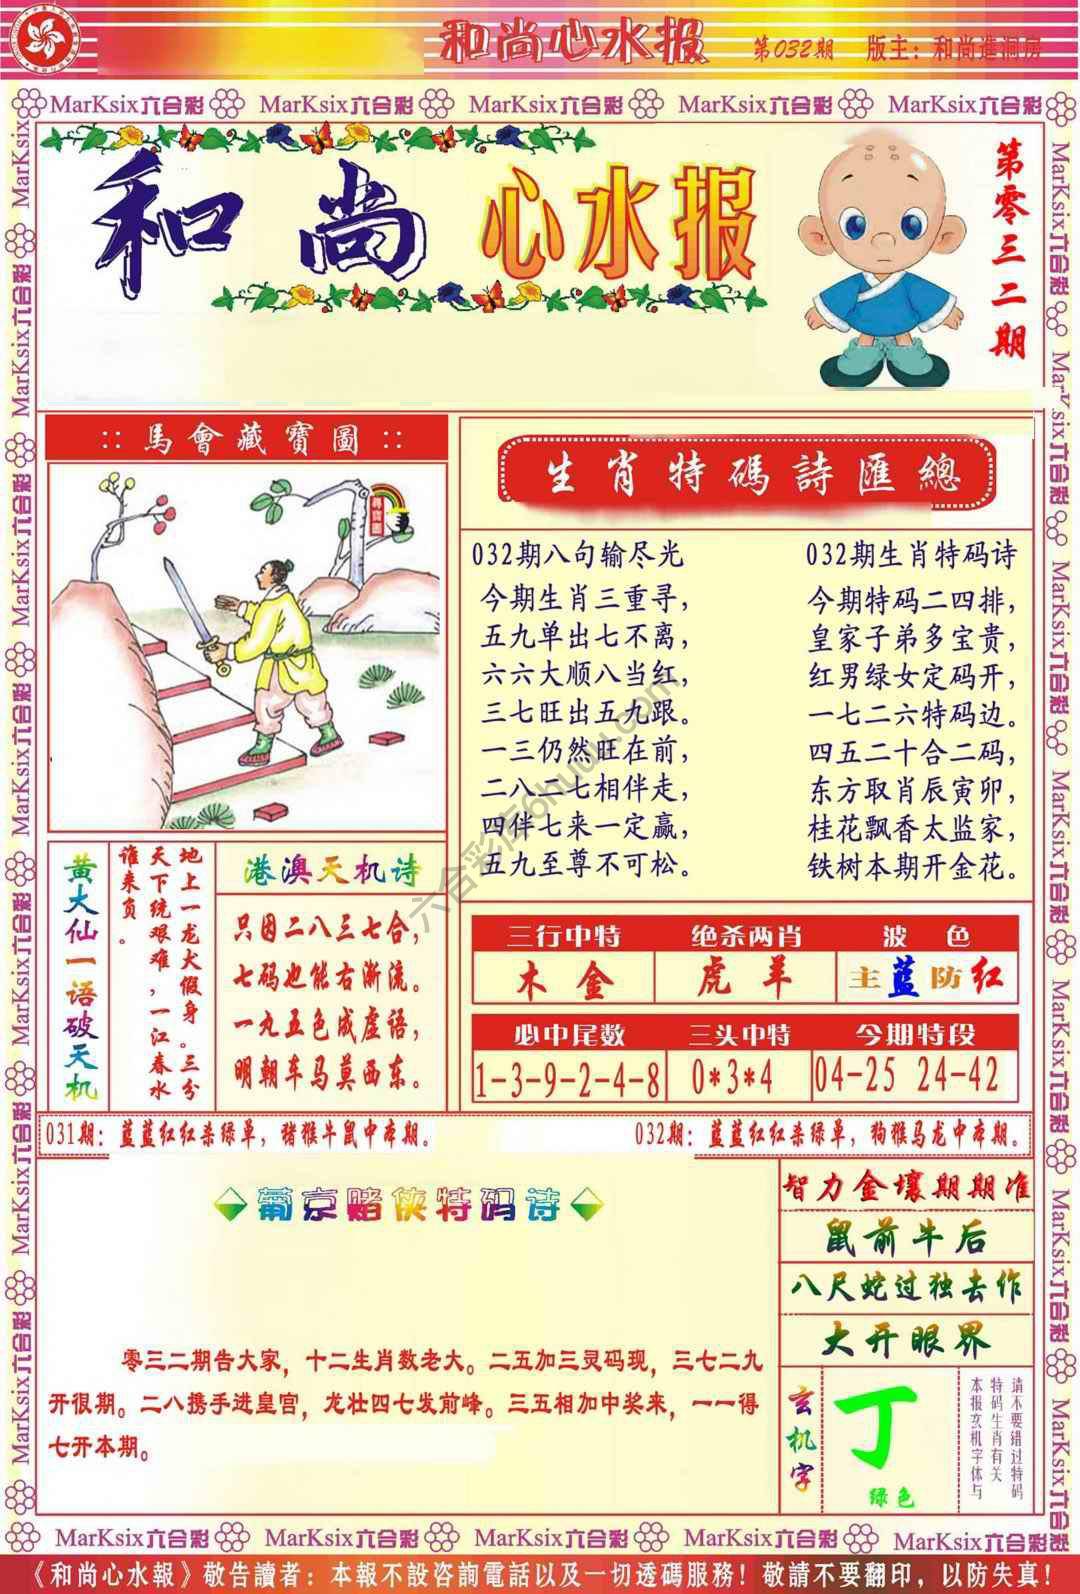 和尚心水报
第032期
版主：和尚進洞房
MarKsix六合彩 MarKsix六合彩 MarKsix六合彩 MarKsix六合彩 MarKsix六合彩
和尚心水报
第零三二期
:: 馬會藏寶圖 ::
生肖特碼詩匯總
032期八句输尽光
今期生肖三重寻，
五九单出七不离，
六六大顺八当红，
三七旺出五九跟。
一三仍然旺在前，
二八一七相伴走，
四伴七来一定赢，
五九至尊不可松。
032期生肖特码诗
今期特码二四排，
皇家子弟多宝贵，
红男绿女定码开，
一七二六特码边。
四五二十合二码，
东方取肖辰寅卯，
桂花飘香太监家，
铁树本期开金花。
六合彩库6huuu.com
黄大仙一语破天机
地上一龙大假身。三分
天下统艰难，一江春水
谁来负。
港澳天机诗
只因二八三七合，
七码也能右渐流。
一九五色成虚语，
明朝车马莫西东。
三行中特 绝杀两肖 波色
木金 虎羊 主蓝防红
必中尾数 三头中特 今期特段
1-3-9-2-4-8 0*3*4 04-25 24-42
031期：蓝蓝红红杀绿单，猪猴牛鼠中本期。
032期：蓝蓝红红杀绿单，狗猴马龙中本期。
葡京赌侠特码诗
零三二期告大家，十二生肖数老大。二五加三灵码现，三七二九
开很期。二八携手进皇宫，龙壮四七发前峰。三五相加中奖来，一一得
七开本期。
智力金壤期期准
鼠前牛后
八尺蛇过独去作
大开眼界
玄机字
丁
绿色
请不要错过特码
特码生肖有关
本报玄机字体与
MarKsix六合彩 MarKsix六合彩 MarKsix六合彩 MarKsix六合彩 MarKsix六合彩
《和尚心水報》敬告讀者：本報不設咨詢電話以及一切透碼服務！敬請不要翻印，以防失真！